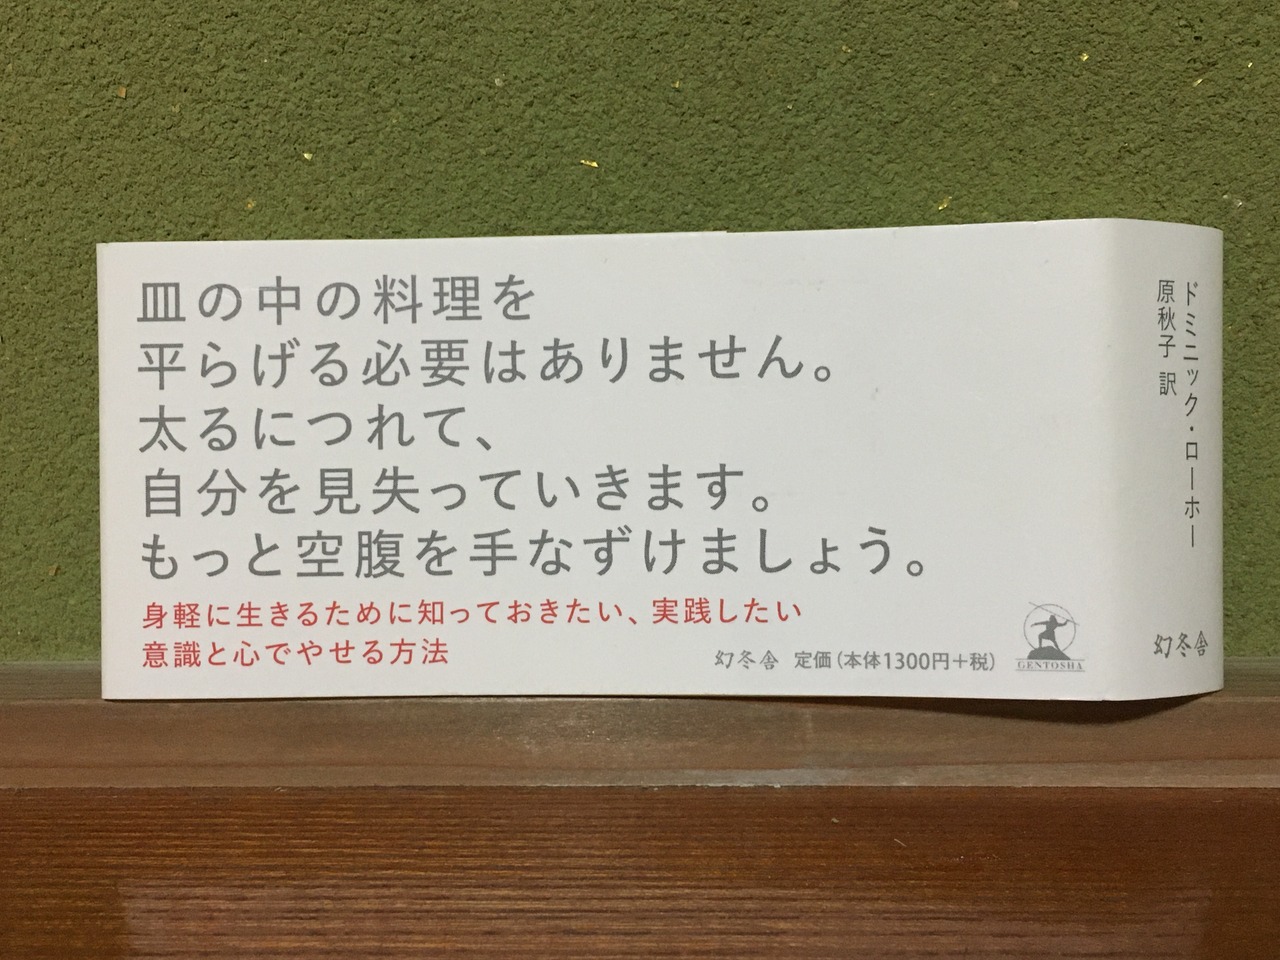 皿の中の料理を
平らげる必要はありません。
太るにつれて、
自分を見失っていきます。
もっと空腹を手なずけましょう。
身軽に生きるために知っておきたい、実践したい
意識と心でやせる方法
幻冬舎 定価(本体1300円+税)
GENTOSHA
ドミニック・ローホー
原秋子 訳
幻冬舎